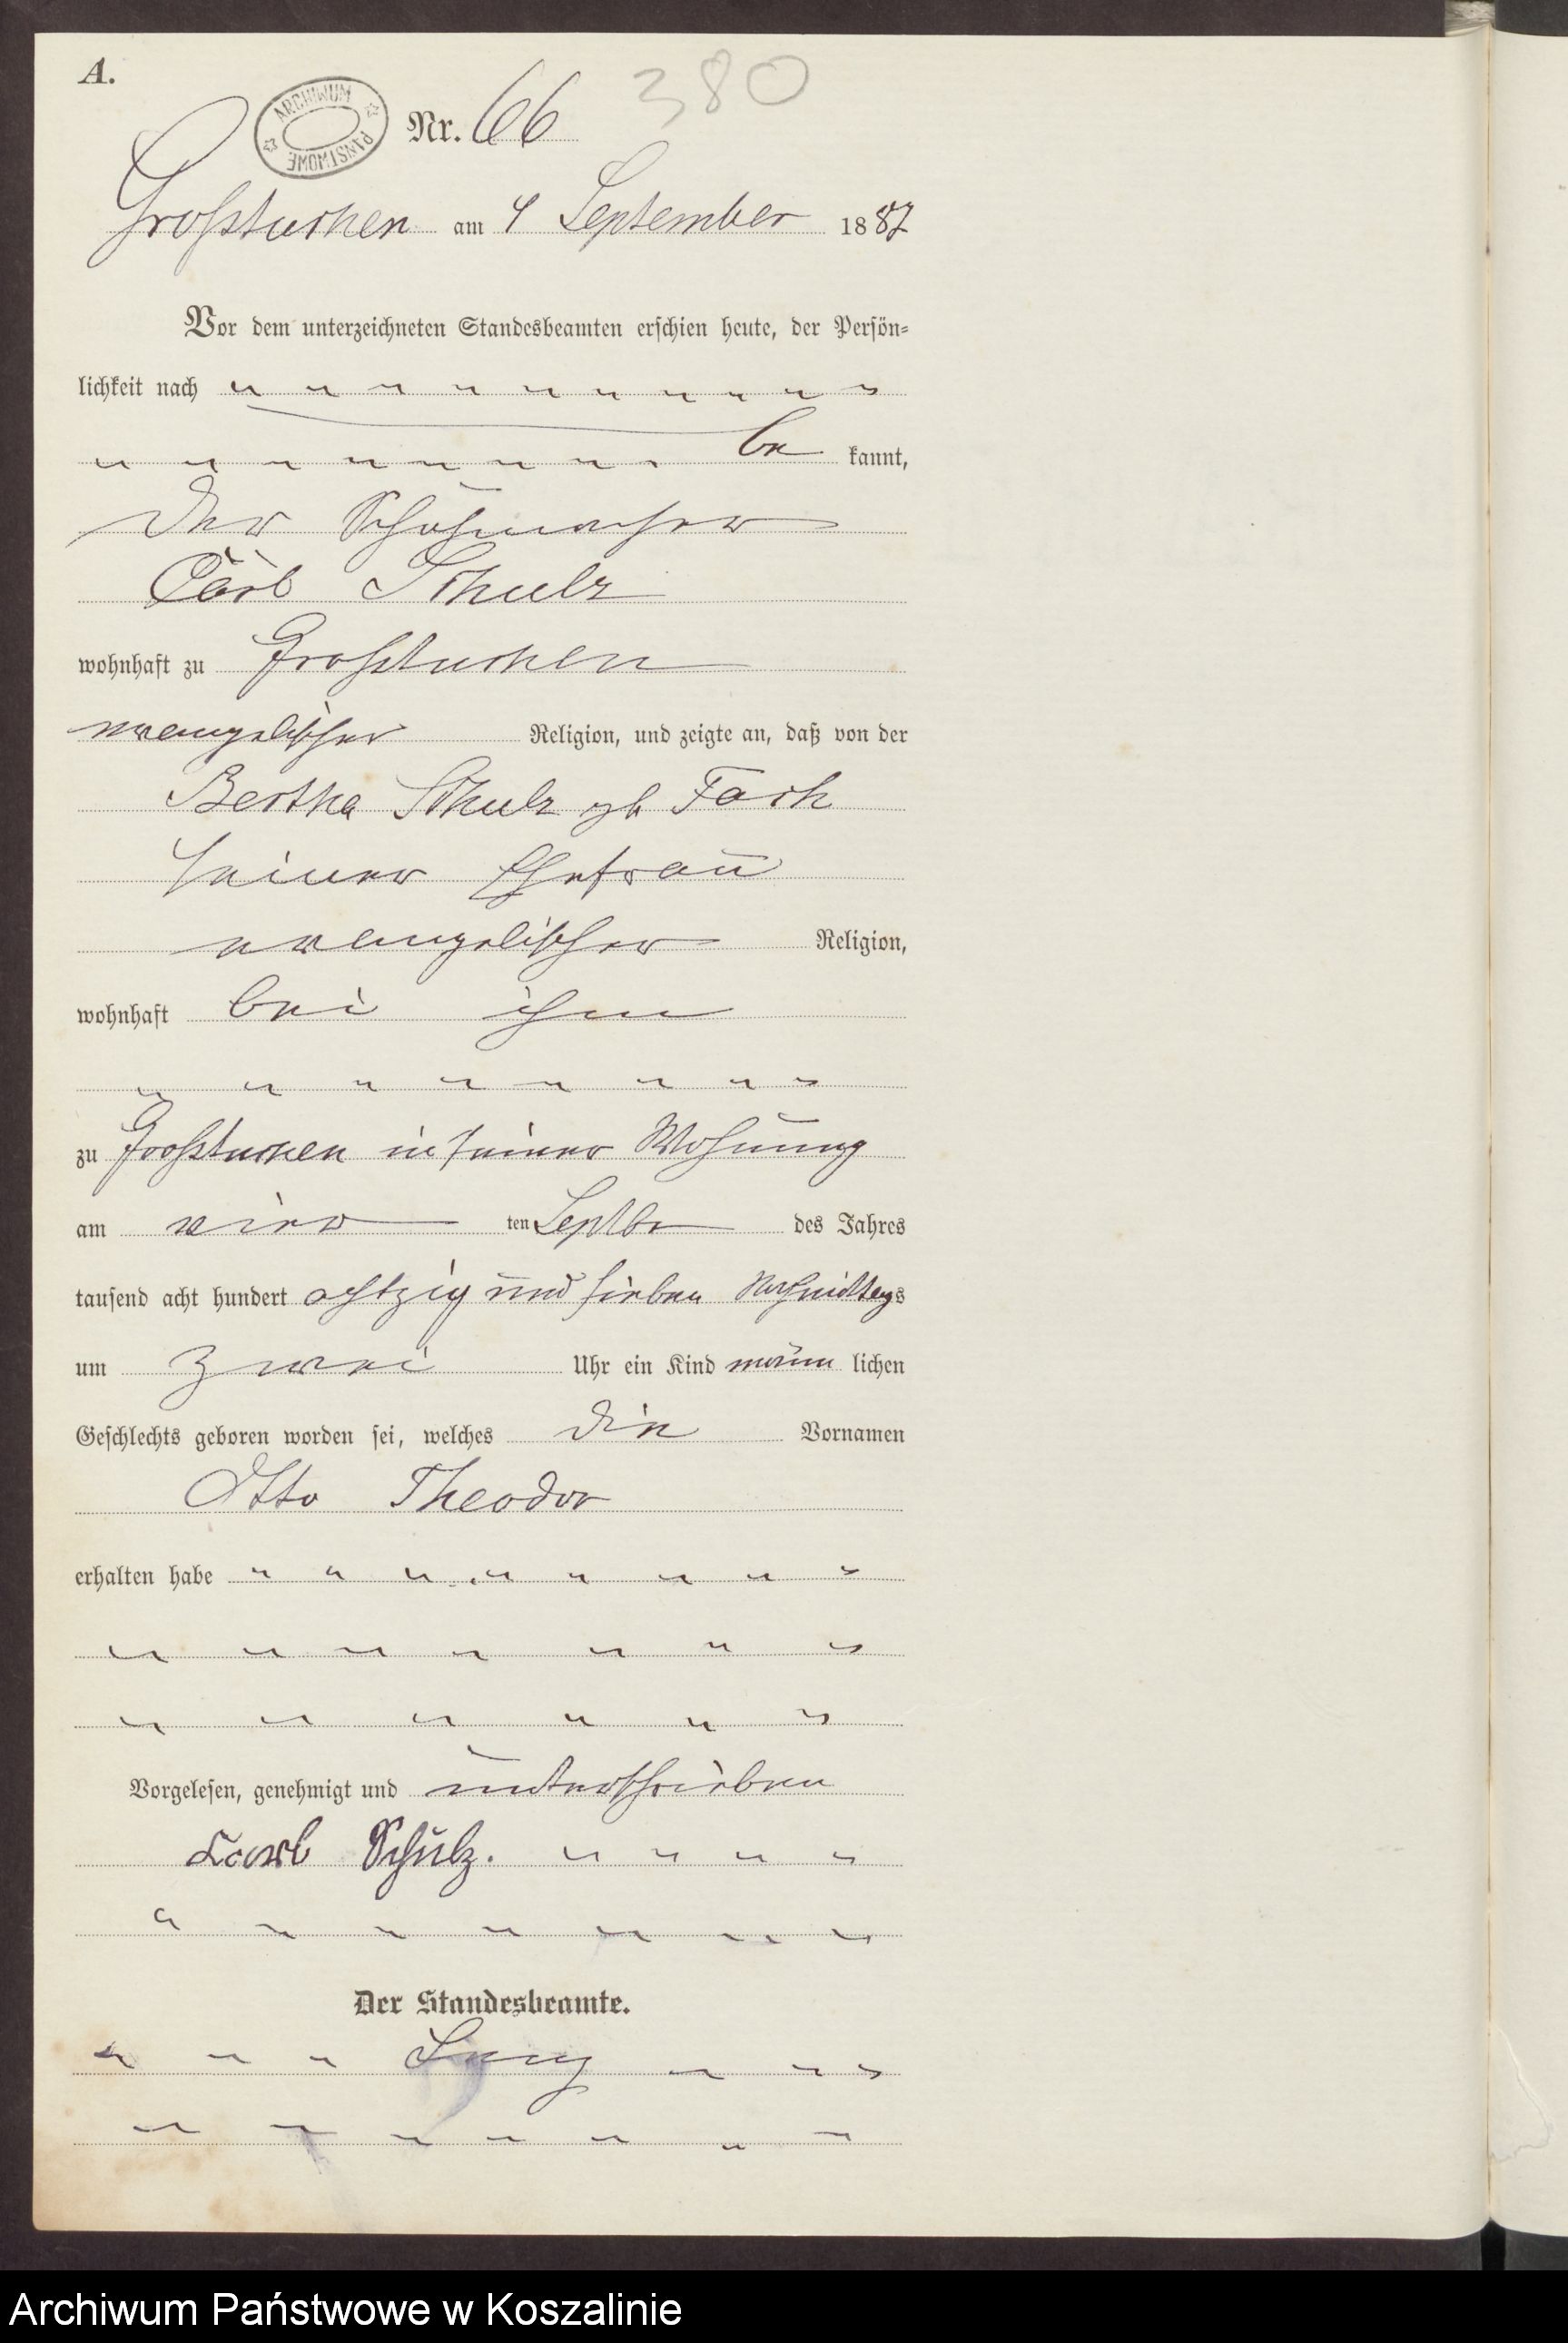 A.
ARCHIWUM PAŃSTWOWE
Nr. 66
380
Großtuchen am 4 September 1887
Vor dem unterzeichneten Standesbeamten erschien heute, der Persön-
lichkeit nach
be kannt,
der Schuhmacher
Carl Schulz
wohnhaft zu Großtuchen
evangelischer Religion, und zeigte an, daß von der
Bertha Schulz gb
seiner Ehefrau
evangelischer Religion,
wohnhaft bei ihm
zu Großtuchen in seiner Wohnung
am vier ten Septbr des Jahres
tausend acht hundert achtzig und sieben Nachmittags
um zwei Uhr ein Kind männ lichen
Geschlechts geboren worden sei, welches die Vornamen
Otto Theodor
erhalten habe
Vorgelesen, genehmigt und unterschrieben
Carl Schulz.
Der Standesbeamte.
Archiwum Państwowe w Koszalinie